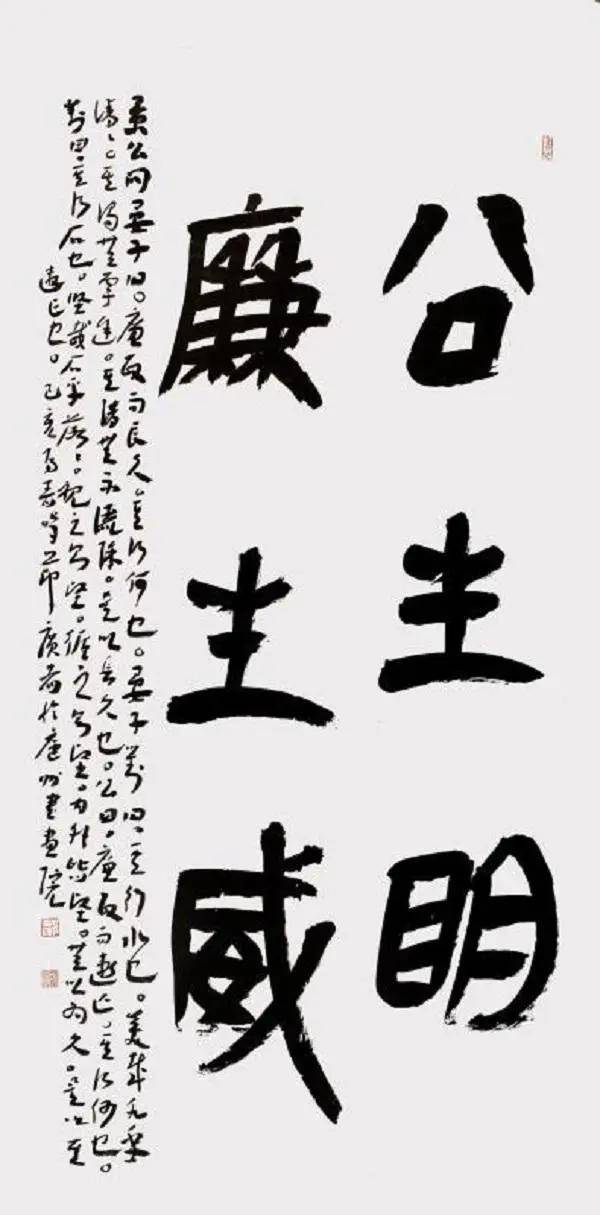 公生明
廉生威
景公问晏子曰。廉政而长久。其行何也。晏子对曰。其行水也。美哉水乎
清清。其浊无雩途。其清无不洒除。是以长久也。公曰。廉政而遬亡。其行何也。
对曰。其行石也。坚哉石乎落落。视之则坚。循之则坚。内外皆坚。无以为久。是以
遬亡也。己亥 於廬州書画院